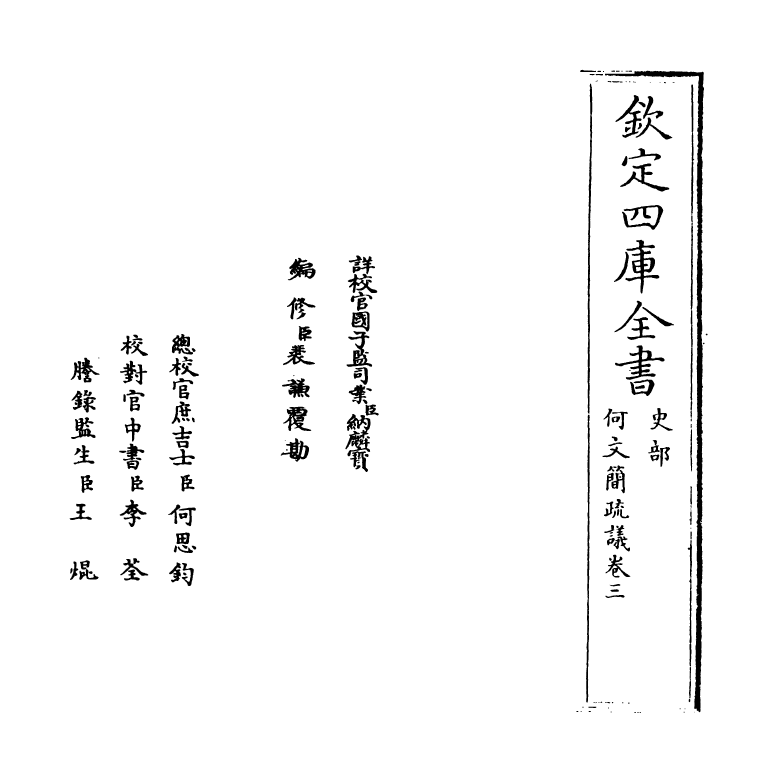 欽定四庫全書
史部
何文簡疏議卷三
詳校官國子監司業臣納麟寶
編修臣裴謙覆勘
總校官庶吉士臣何思鈞
校對官中書臣李荃
謄錄監生臣王焜